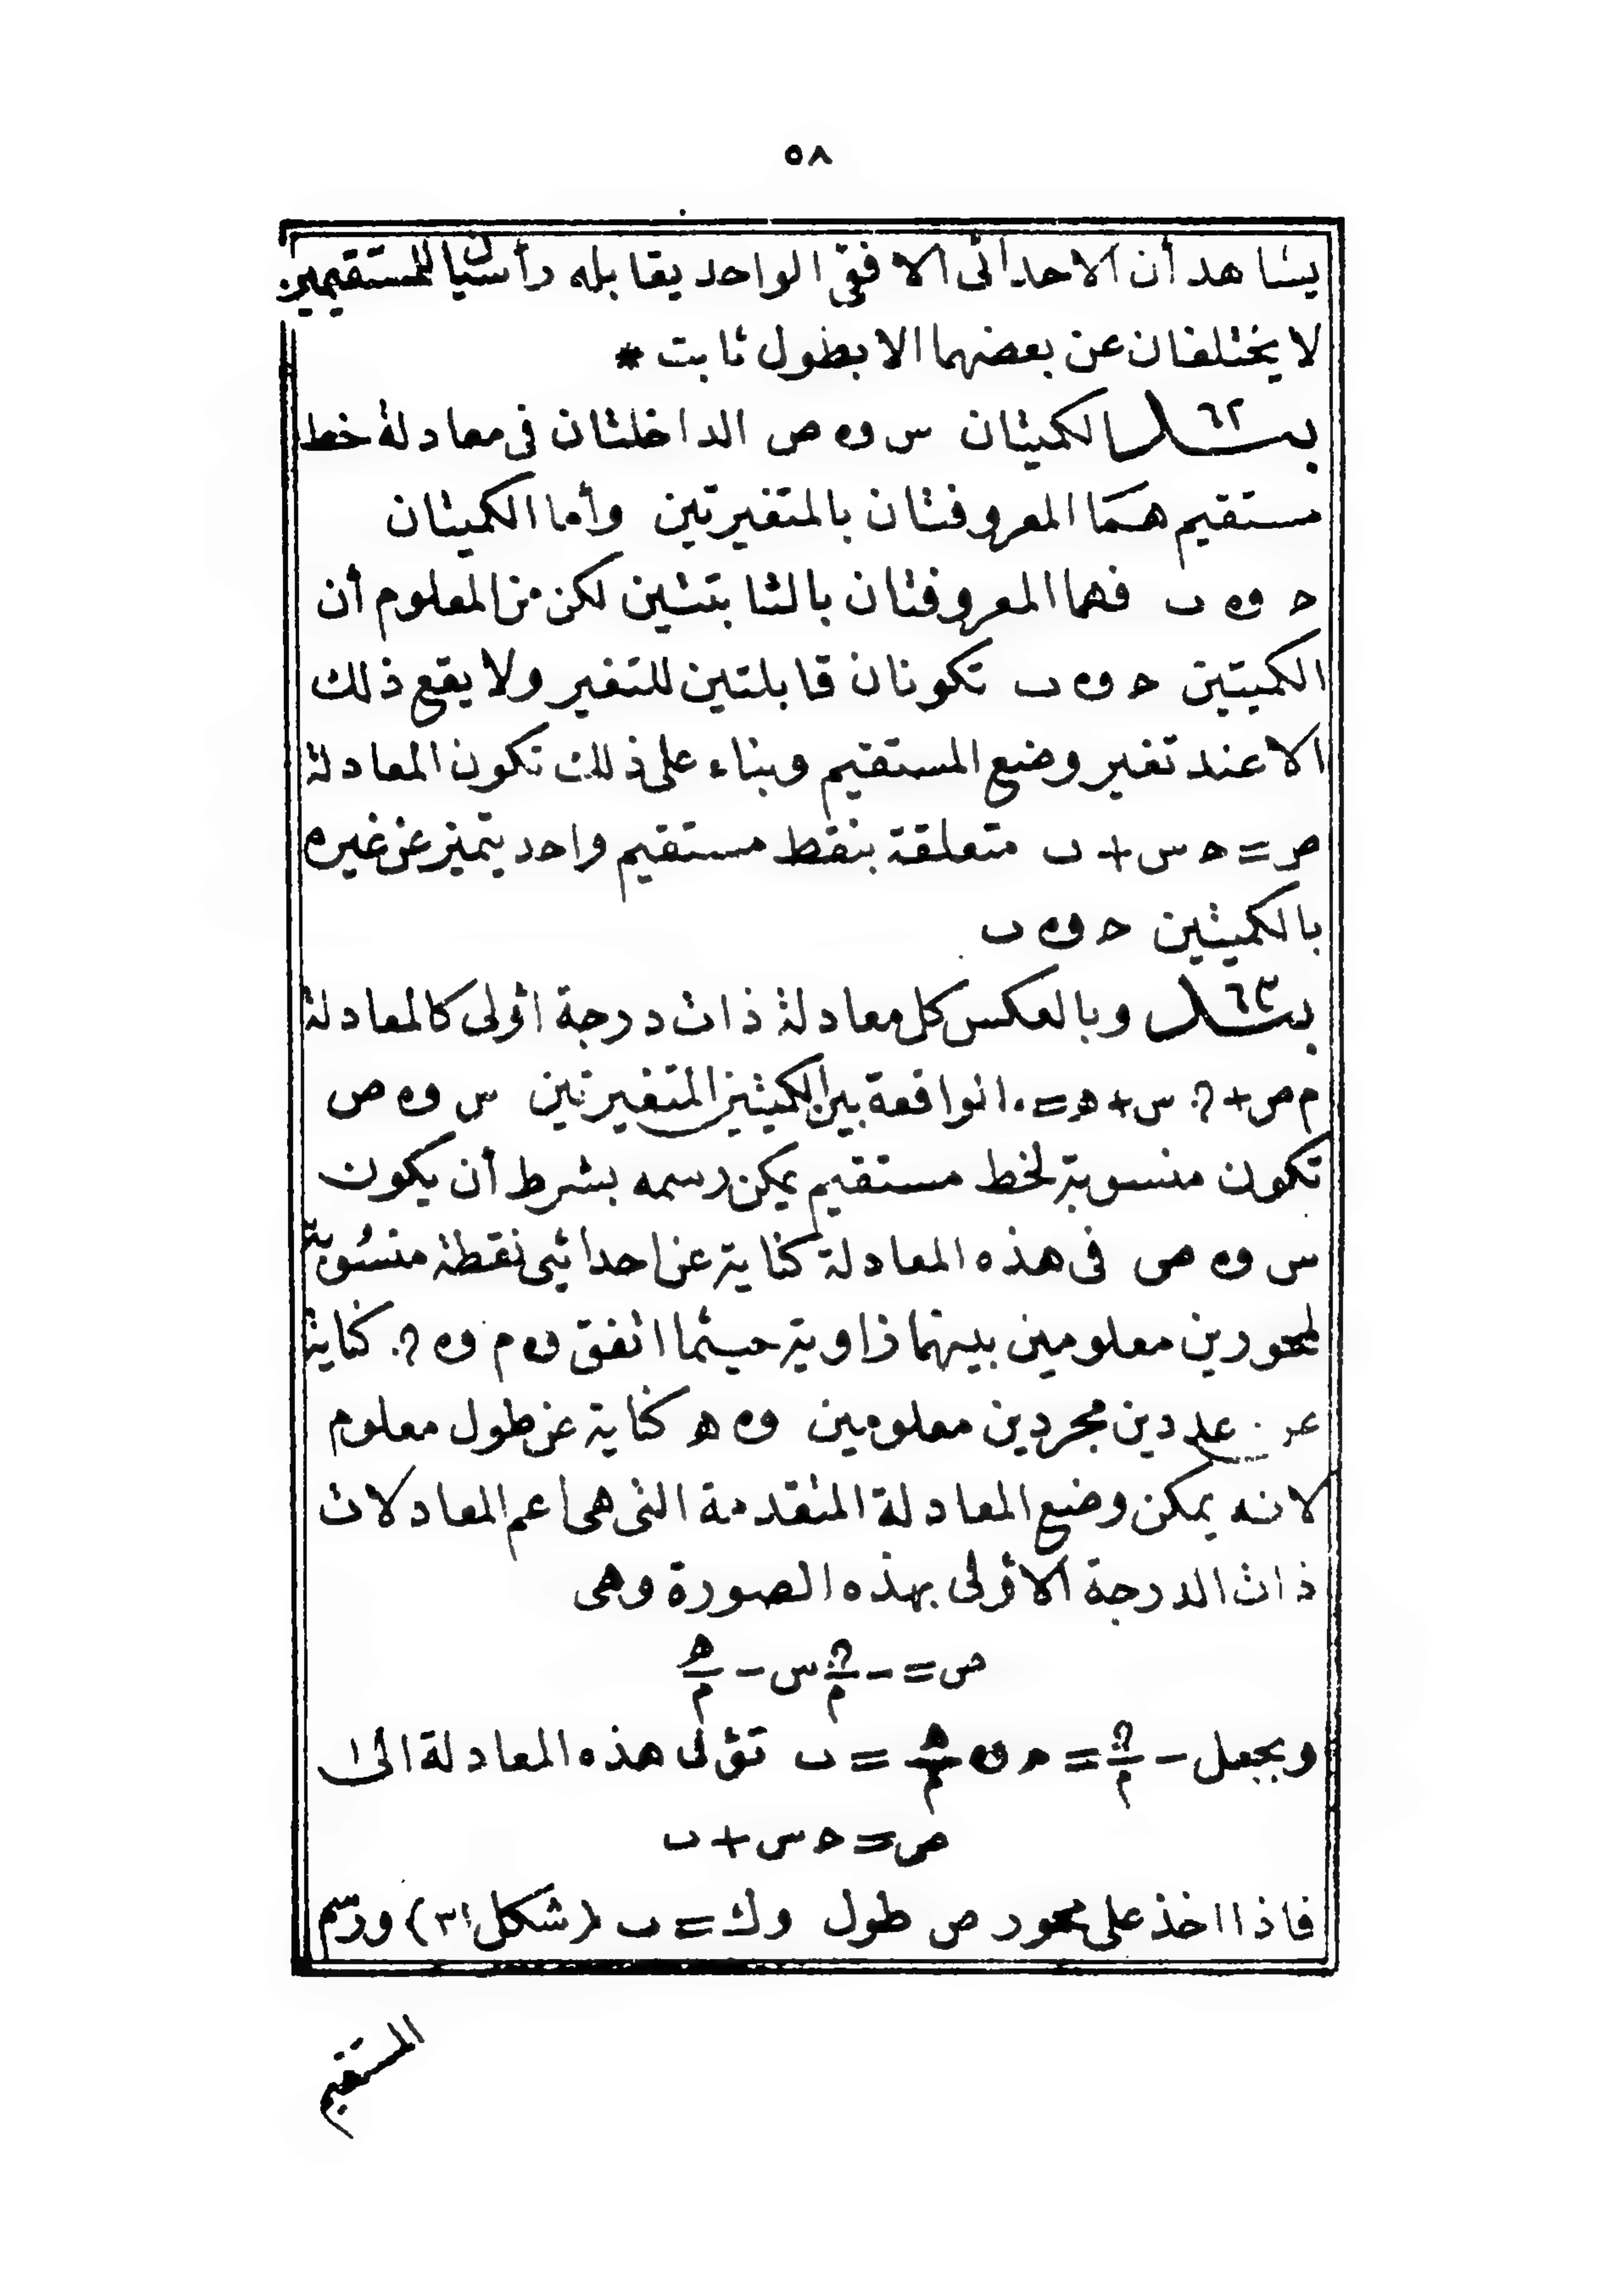 ٥٨
يشاهد أن الاحداثى الافقى الواحد يقابله رأسيا المستقيمين
لا يختلفان عن بعضهما الا بطول ثابت *
بند ٦٢ الكميتان س و ص الداخلتان فى معادلة خط
مستقيم هما المعروفتان بالمتغيرتين وأما الكميتان
ح و ب فهما المعروفتان بالثابتتين لكن من المعلوم أن
الكميتين ح و ب تكونان قابلتين للتغير ولا يقع ذلك
الا عند تغير وضع المستقيم وبناء على ذلك تكون المعادلة
ص = ح س + ب متعلقة بنقط مستقيم واحد يتميز عن غيره
بالكميتين ح و ب
بند ٦٣ وبالعكس كل معادلة ذات درجة اولى كالمعادلة
م ص + ن س + ه = ٠ الواقعة بين الكميتين المتغيرتين س و ص
تكون منسوبة لخط مستقيم يمكن رسمه بشرط أن يكون
س و ص فى هذه المعادلة كناية عن احداثيى نقطة منسوبة
لمحورين معلومين بينهما زاوية حيثما اتفق و م و ن كناية
عن عددين مجردين معلومين و ه كناية عن طول معلوم
لانه يمكن وضع المعادلة المتقدمة التى هى اعم المعادلات
ذات الدرجة الاولى بهذه الصورة وهى
ص = - ن/م س - ه/م
وبجعل - ن/م = ح و ه/م = ب تؤل هذه المعادلة الى
ص = ح س + ب
فاذا اخذ على محور ص طول و ك = ب (شكل ٣١) ورسم
المستقيم